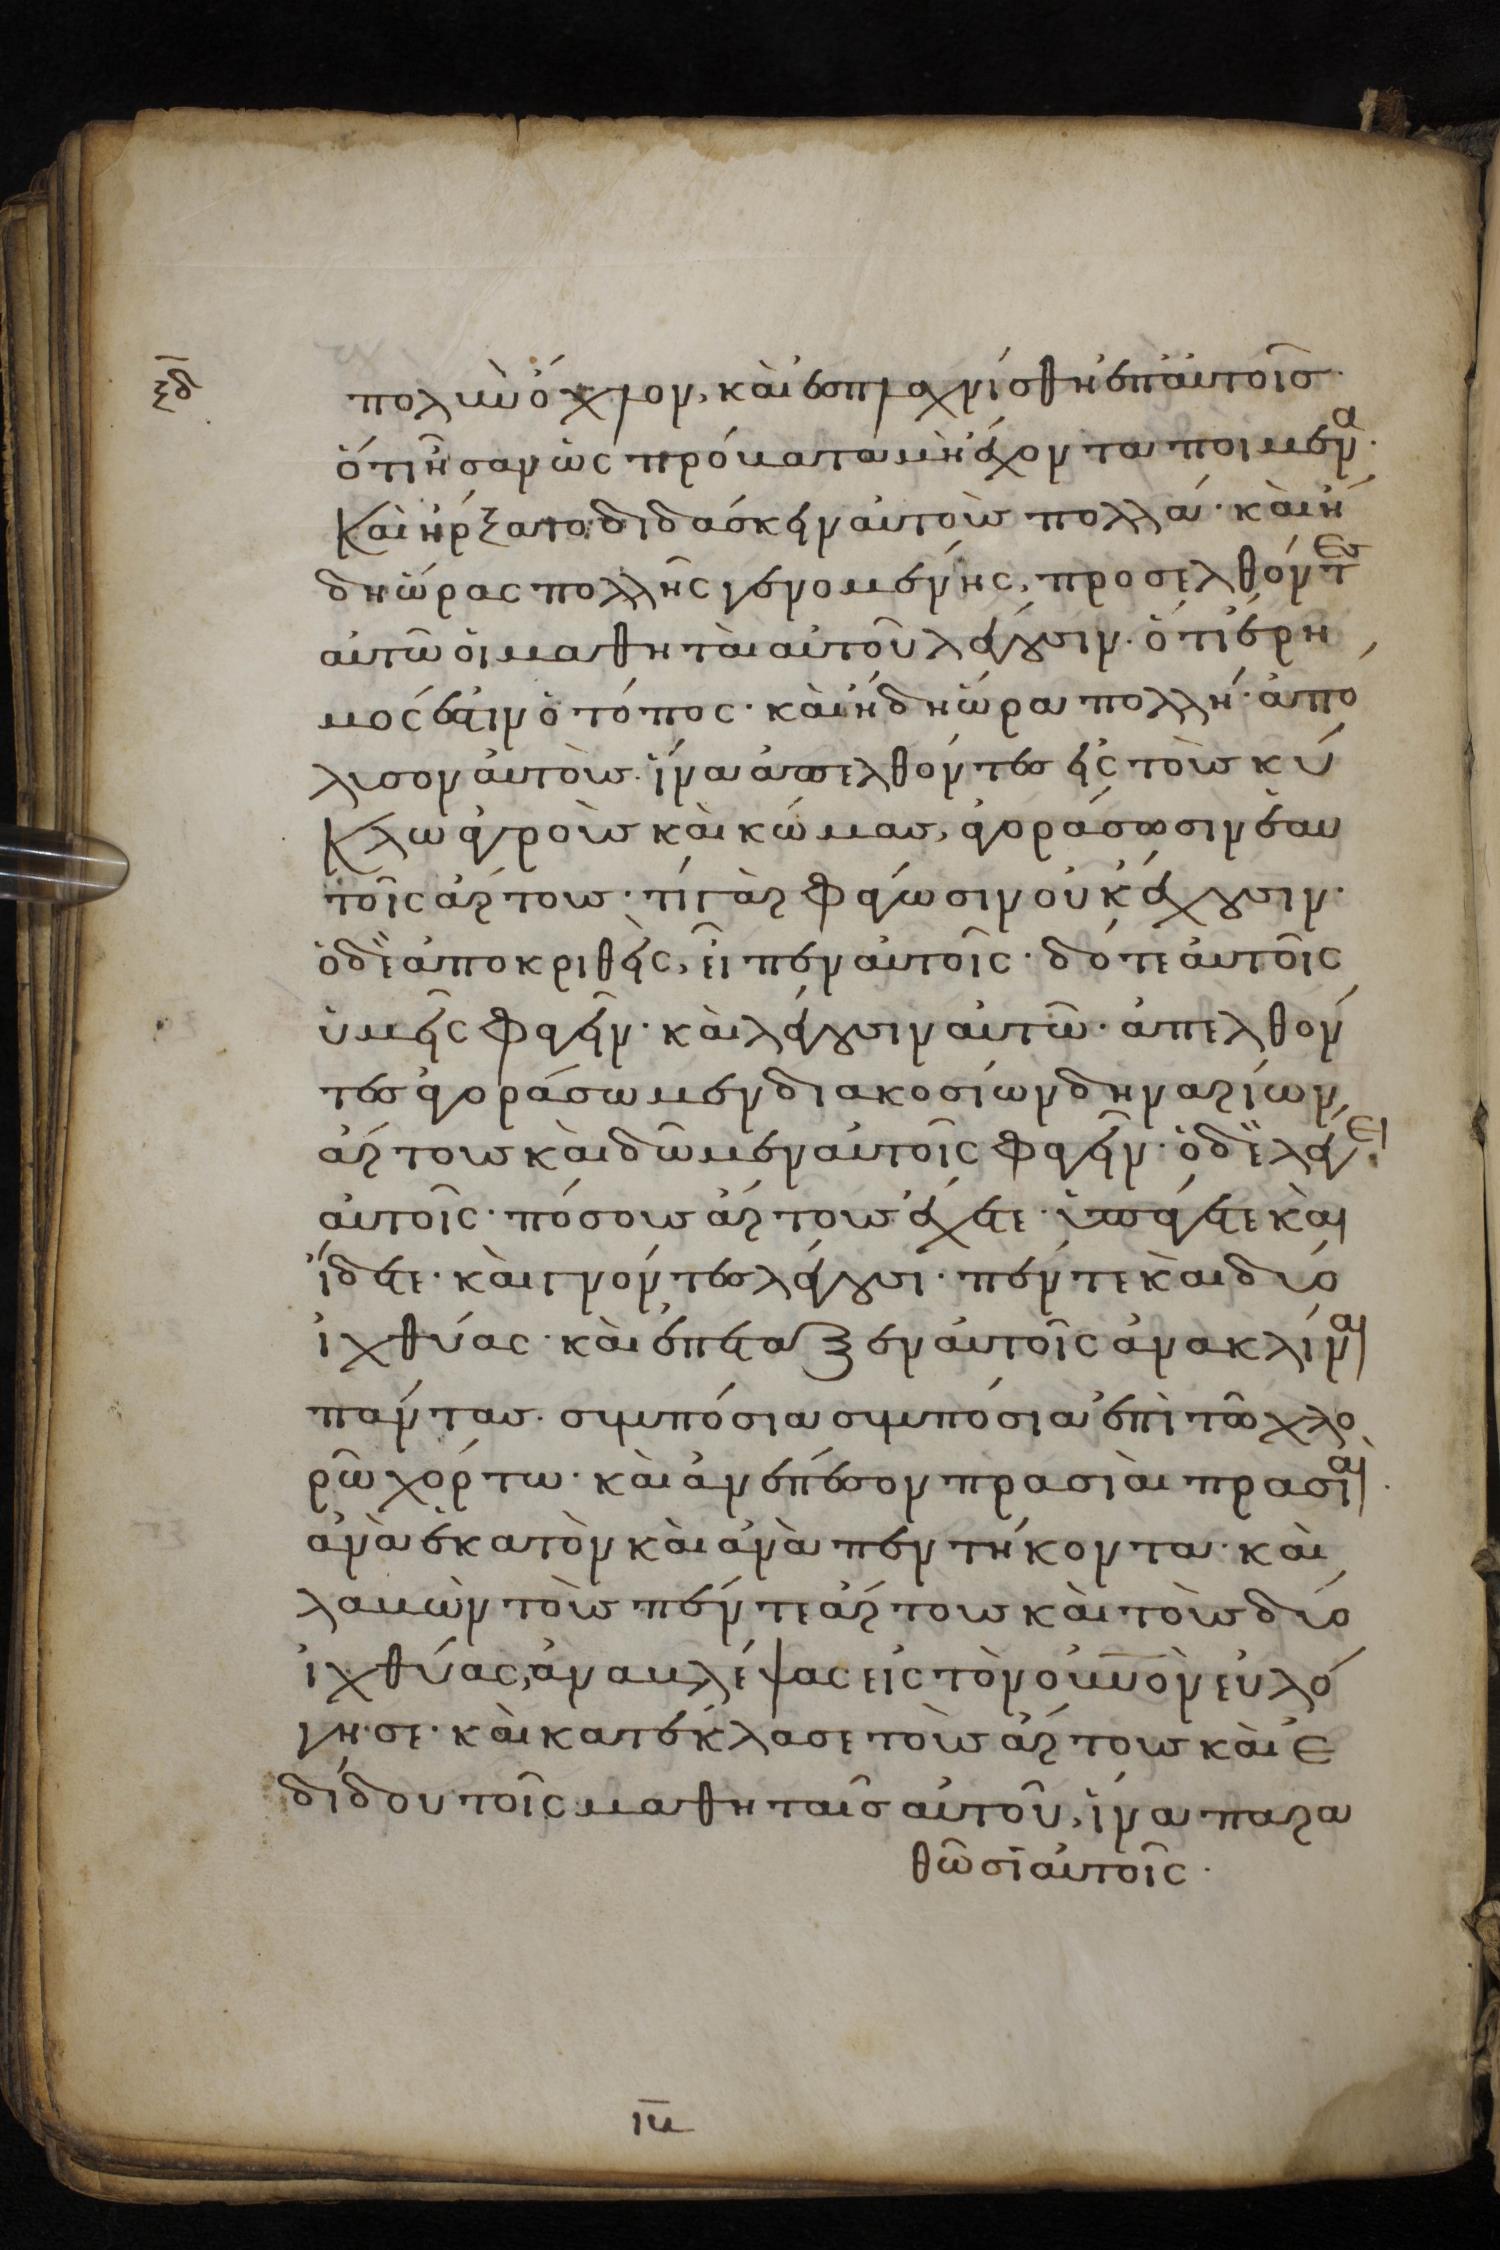 ξδ
πολὺν ὄχλον, καὶ ἐσπλαχνίσθη ἐπ' αὐτοῖς·
ὅτι ἦσαν ὡς πρόβατα μὴ ἔχοντα ποιμένα·
καὶ ἤρξατο διδάσκειν αὐτοὺς πολλά· καὶ ἤ
δη ὥρας πολλῆς γενομένης, προσελθόντες
αὐτῶ οἱ μαθηταὶ αὐτοῦ λέγουσιν· ὅτι ἔρη
μός ἐστιν ὁ τόπος· καὶ ἤδη ὥρα πολλή· ἀπό
λυσον αὐτοὺς· ἵνα ἀπελθόντες εἰς τοὺς κύ
κλω ἀγροὺς καὶ κώμας, ἀγοράσωσιν ἑαυ
τοῖς ἄρτους· τί γὰρ φάγωσιν οὐκ ἔχουσιν·
ὁ δὲ ἀποκριθεὶς, εἶπεν αὐτοῖς· δότε αὐτοῖς
ὑμεῖς φαγεῖν· καὶ λέγουσιν αὐτῶ· ἀπελθόν
τες ἀγοράσωμεν διακοσίων δηναρίων
ἄρτους καὶ δῶμεν αὐτοῖς φαγεῖν· ὁ δὲ λέγει
αὐτοῖς· πόσους ἄρτους ἔχετε· ὑπάγετε καὶ
ἴδετε· καὶ γνόντες λέγουσι· πέντε καὶ δύο
ἰχθύας· καὶ ἐπέταξεν αὐτοῖς ἀνακλίναι
πάντας· συμπόσια συμπόσια ἐπὶ τῶ χλο
ρῶ χόρτω· καὶ ἀνέπεσον πρασιαὶ πρασιαὶ·
ἀνὰ ἑκατὸν καὶ ἀνὰ πεντήκοντα· καὶ
λαβὼν τοὺς πέντε ἄρτους καὶ τοὺς δύο
ἰχθύας, ἀναβλέψας εἰς τὸν οὐνὸν εὐλό
γησε· καὶ κατέκλασε τοὺς ἄρτους καὶ ἐ
δίδου τοῖς μαθηταῖς αὐτοῦ, ἵνα παρα
θῶσι αὐτοῖς·
ιβ